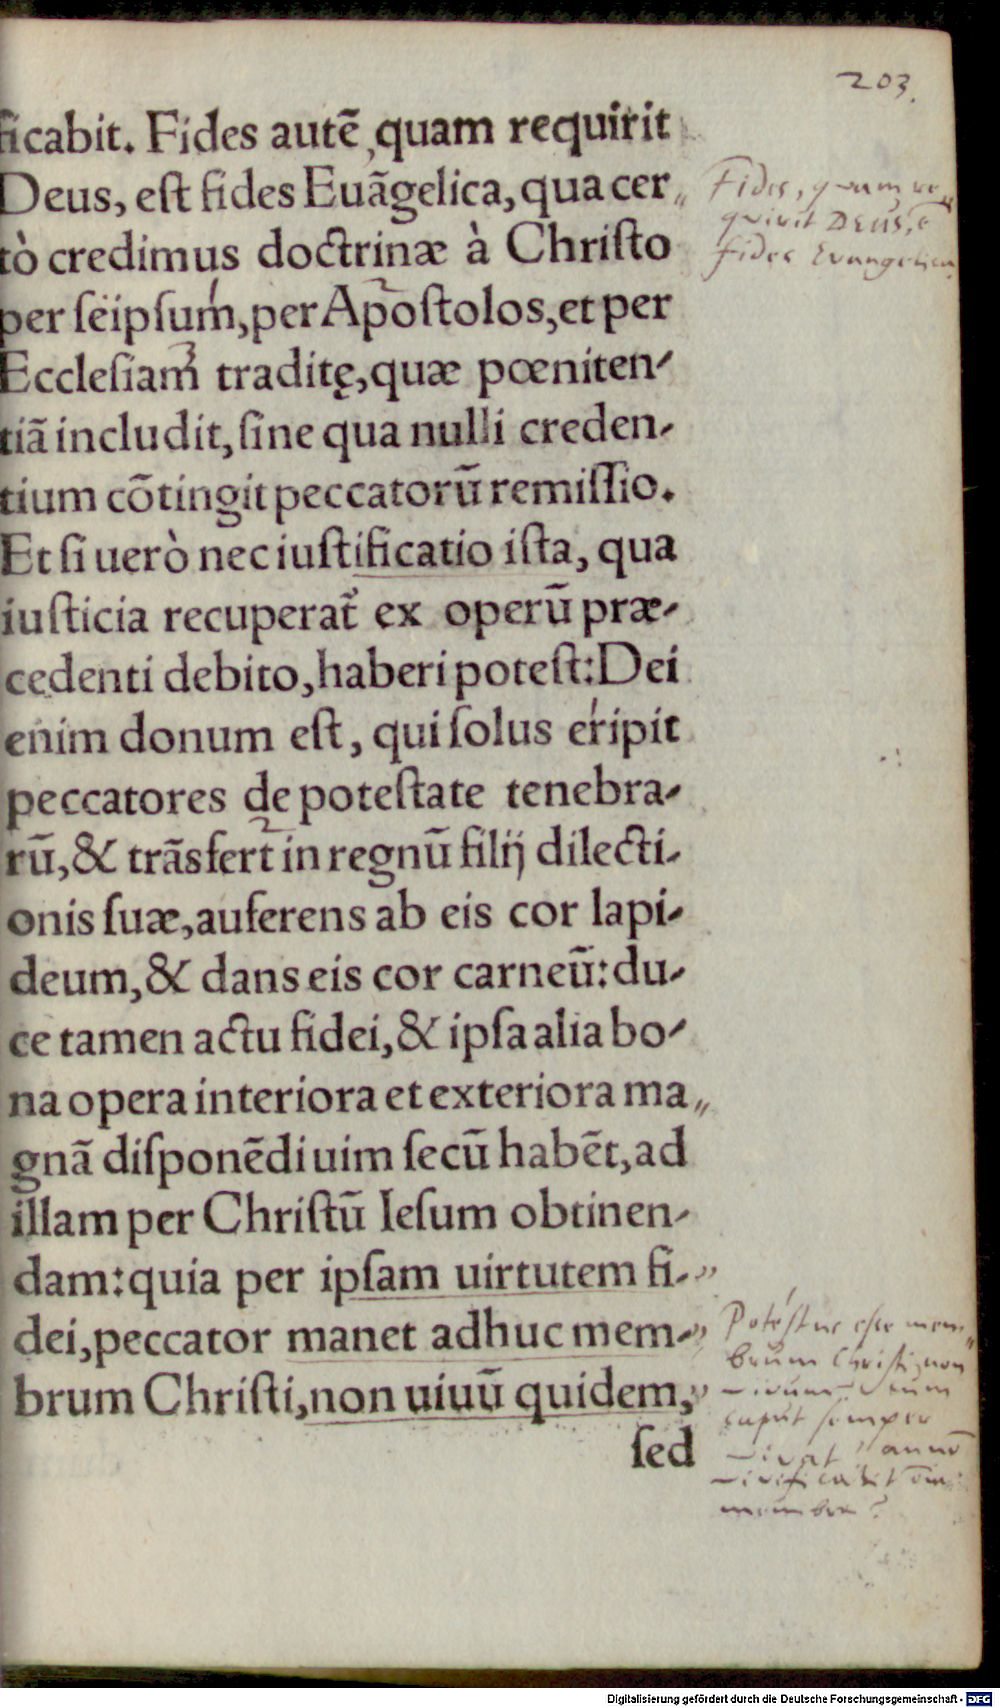 203.
ficabit. Fides autē quam requirit
Deus, est fides Euāgelica, qua cer„
tò credimus doctrinæ à Christo
per seipsum, per Apostolos, et per
Ecclesiam traditę, quæ pœniten-
tiā includit, sine qua nulli creden-
tium cōtingit peccatorū remissio.
Et si uerò nec iustificatio ista, qua
iusticia recuperat᷑ ex operū præ-
cedenti debito, haberi potest: Dei
enim donum est, qui solus eripit
peccatores de potestate tenebra-
rū, & trāsfert in regnū filij dilecti-
onis suæ, auferens ab eis cor lapi-
deum, & dans eis cor carneū: du-
ce tamen actu fidei, & ipsa alia bo-
na opera interiora et exteriora ma„
gnā disponēdi uim secū habēt, ad
illam per Christū Iesum obtinen-
dam: quia per ipsam uirtutem fi-
dei, peccator manet adhuc mem-
brum Christi, non uiuū quidem,
sed
Fides, quam re„
quirit DEUS, ē
fides Evangelica.
Potéstne esse mem„
brum Christi, non
vivum cum
caput semper
vivat, an nō
vivificabit oīa
membra?
Digitalisierung gefördert durch die Deutsche Forschungsgemeinschaft - DFG